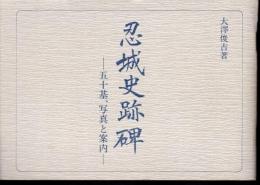 大澤俊吉著
忍城史跡碑
―五十基、写真と案内―